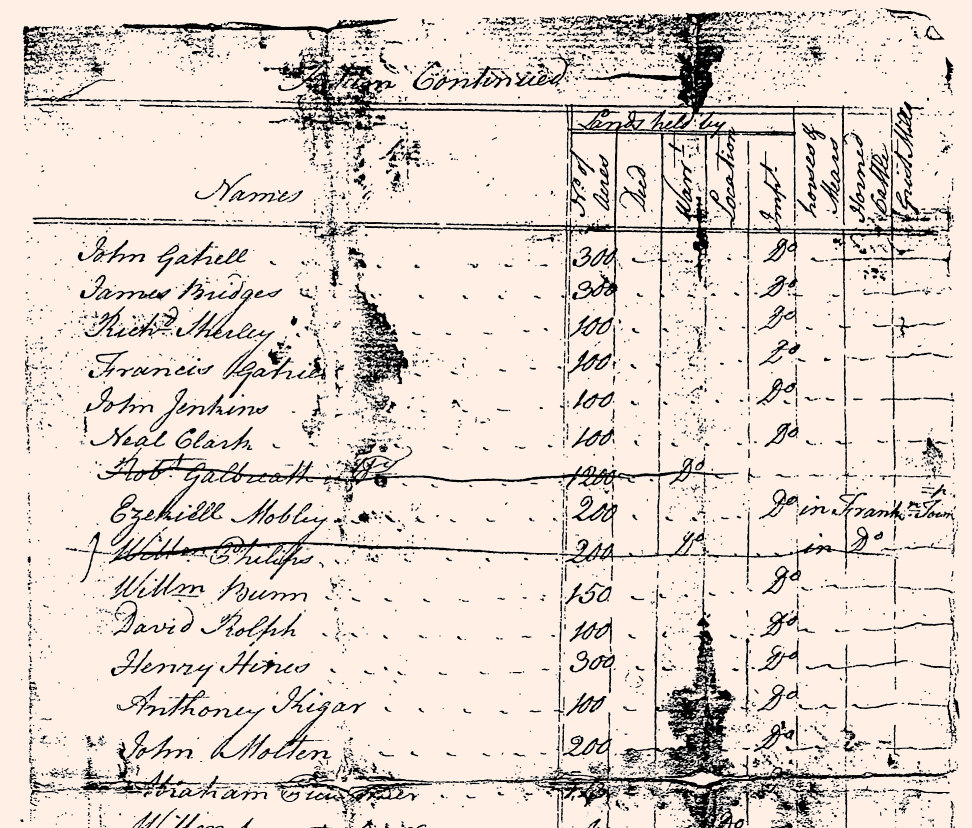 Continued
Lands held by
Names
No. of Acres
Deed
Warrt
Location
Impt
horses & Mears
Horned Cattle
Grist Mills
John Gatrell 300 Do
James Bridges 300 Do
Richd. Sherley 100 Do
Francis Gatrell 100 Do
John Jenkins 100 Do
Neal Clark 100 Do
Robt Galbreath 1200 Do
Ezekiell Mobley 200 Do in Frankn Townp
Willm Philips 200 Do in Do
Willm Bunn 150 Do
David Rolph 100 Do
Henry Hines 300 Do
Anthoney Kigar 100 Do
John Molten 200 Do
Abraham
Willm Do